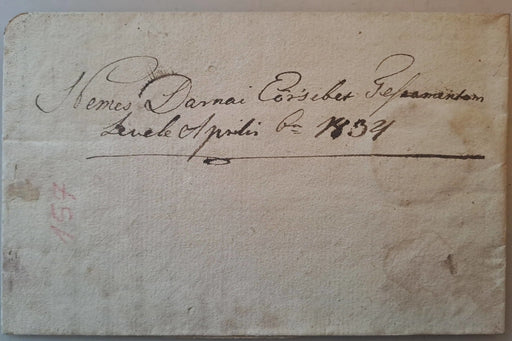 Nemes Darnai Ersebet Testamentom
Levele Aprilis 6n 1834
157